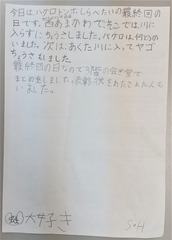 今日はハグロトンボしらべたいの最終回の
日です。西あまがわで、そこでは川に
入らずにちょうさしました。ハグロは何びきか
いました。次は、あくた川に入ってヤゴ
ちょうさもしました。
最終回の日なので
まとめをしました。表彰状をわたされた人も
いました。
大好き